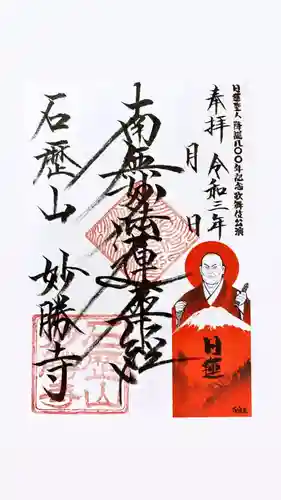 日蓮聖人 降誕八〇〇年記念歌舞伎公演
奉拝 令和三年
月 日
南無妙法蓮華経
石歴山 妙勝寺
日蓮